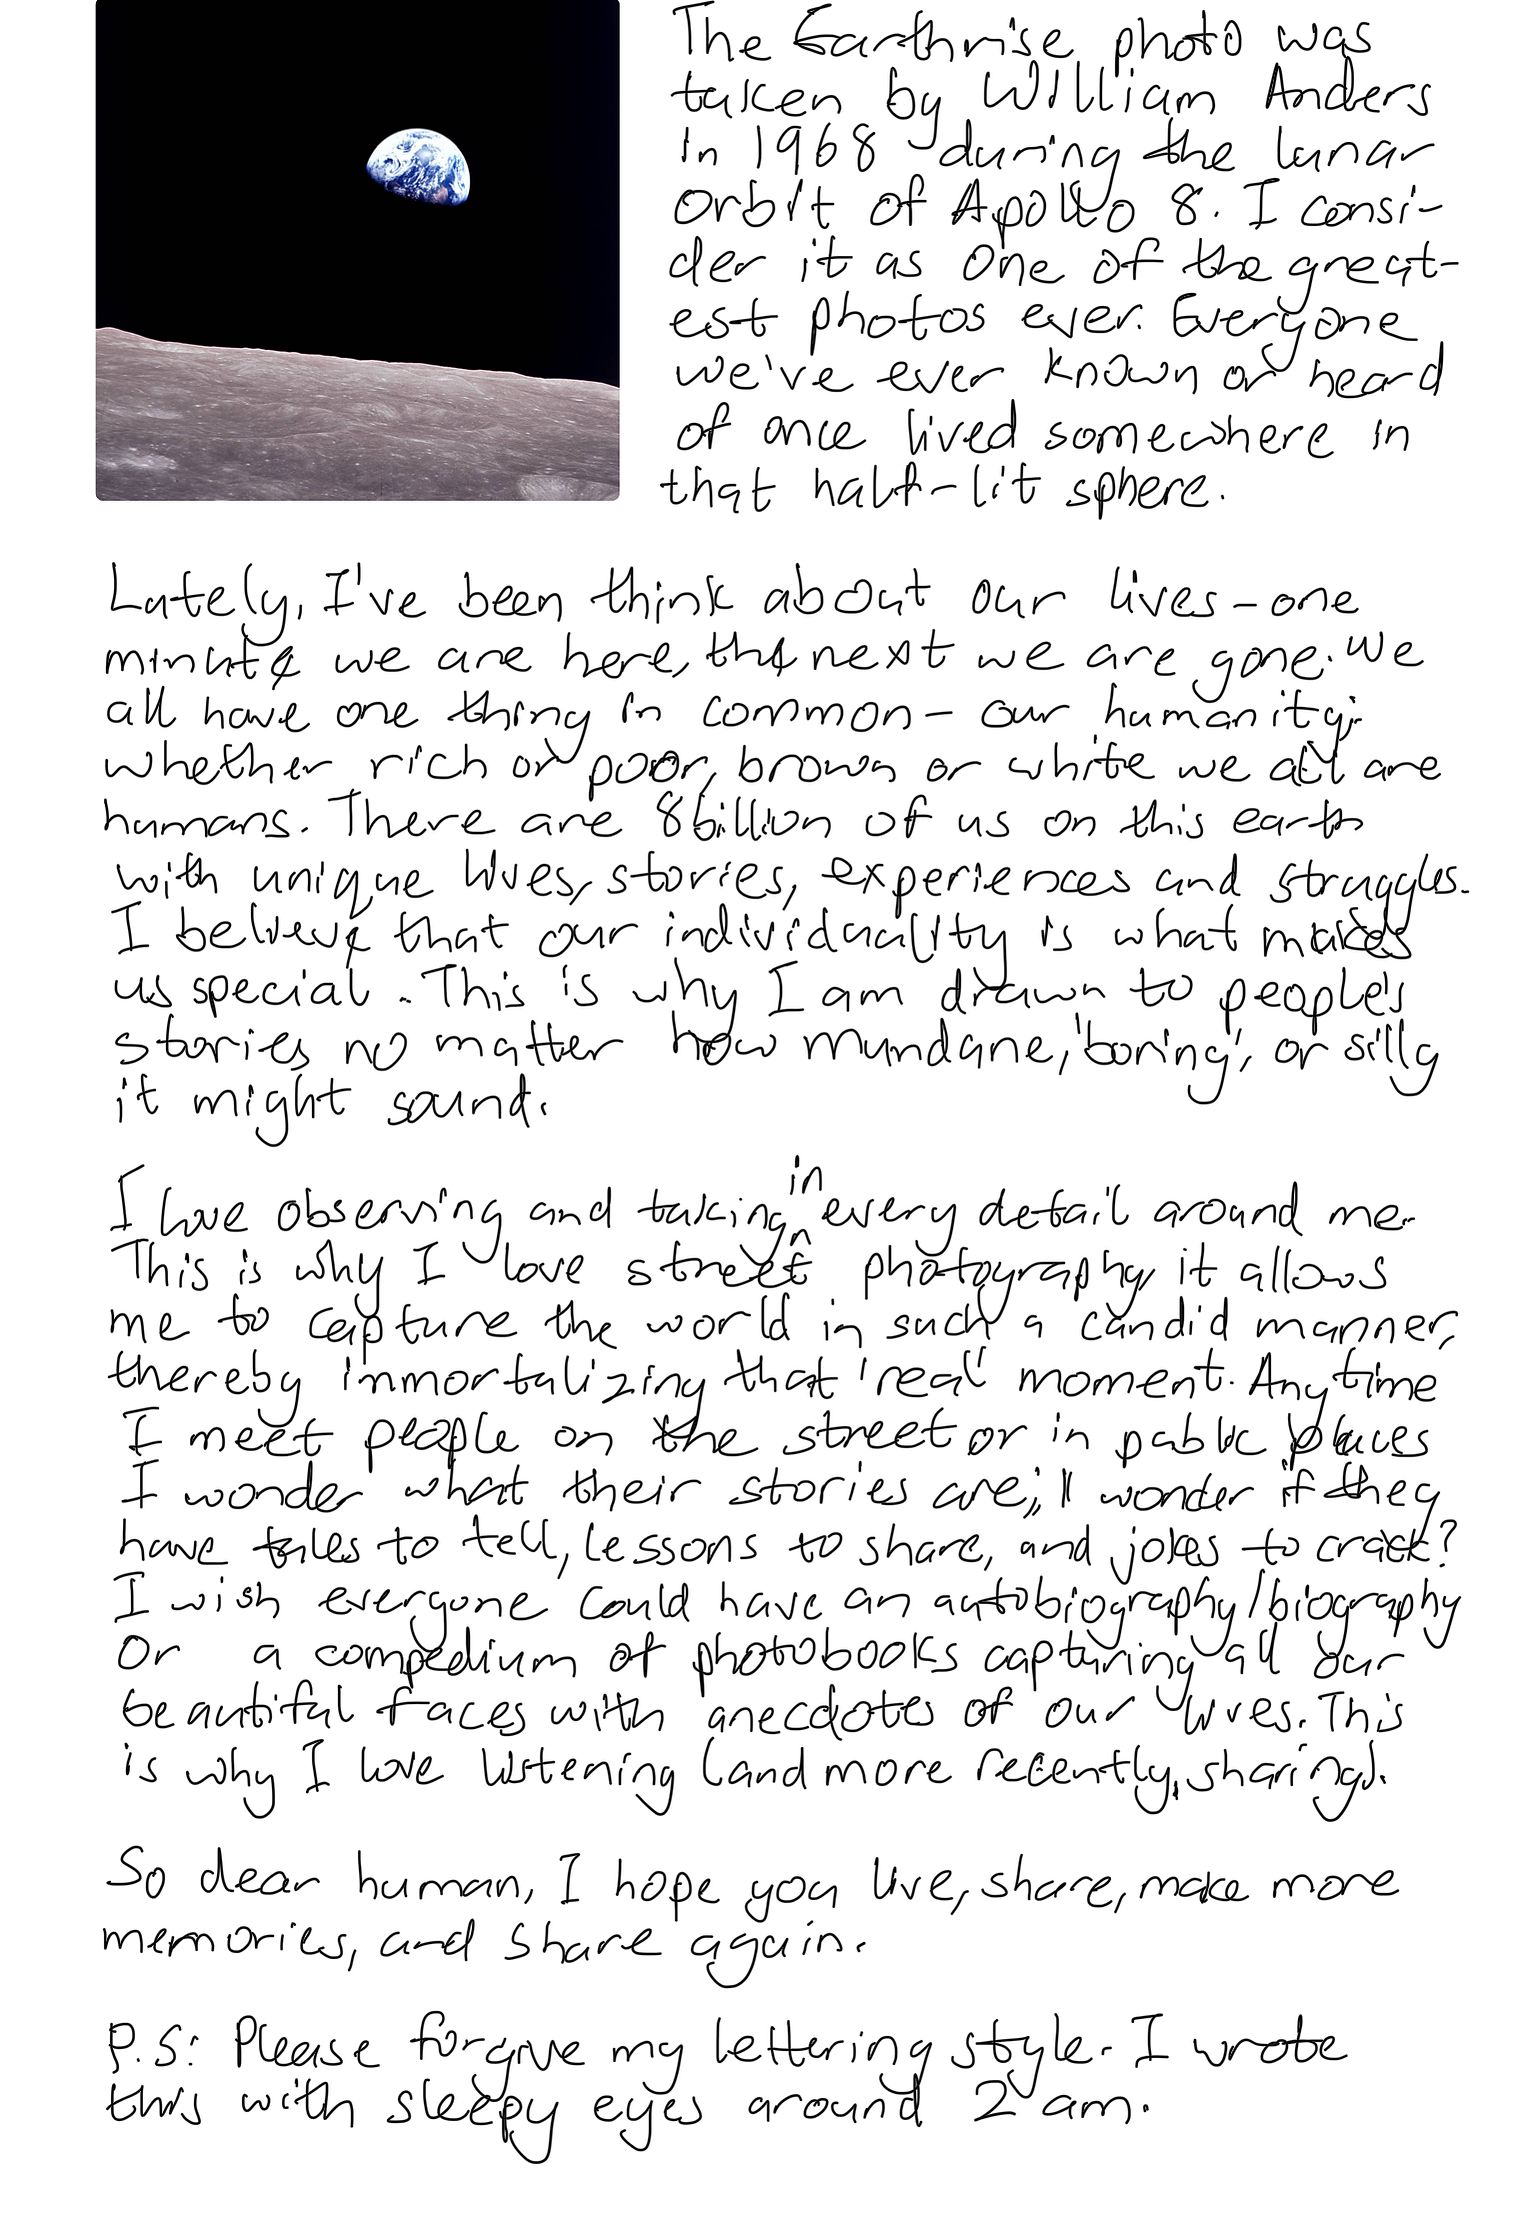 The Earthrise photo was
taken by William Anders
in 1968 during the lunar
orbit of Apollo 8. I consi-
der it as one of the great-
est photos ever. Everyone
we've ever known or heard
of once lived somewhere in
that half-lit sphere.
Lately, I've been think about our lives - one
minute we are here, the next we are gone. We
all have one thing in common - our humanity;
whether rich or poor, brown or white we all are
humans. There are 8billion of us on this earth
with unique lives, stories, experiences and struggles.
I believe that our individuality is what makes
us special. This is why I am drawn to people's
stories no matter how mundane, 'boring', or silly
it might sound.
I love observing and taking in every detail around me.
This is why I love street photography, it allows
me to capture the world in such a candid manner,
thereby immortalizing that 'real' moment. Anytime
I meet people on the street or in public places
I wonder what their stories are; I wonder if they
have tales to tell, lessons to share, and jokes to crack?
I wish everyone could have an autobiography/biography
Or a compedium of photobooks capturing all our
beautiful faces with anecdotes of our lives. This
is why I love listening (and more recently, sharing).
So dear human, I hope you live, share, make more
memories, and share again.
P.S: Please forgive my lettering style. I wrote
this with sleepy eyes around 2 am.